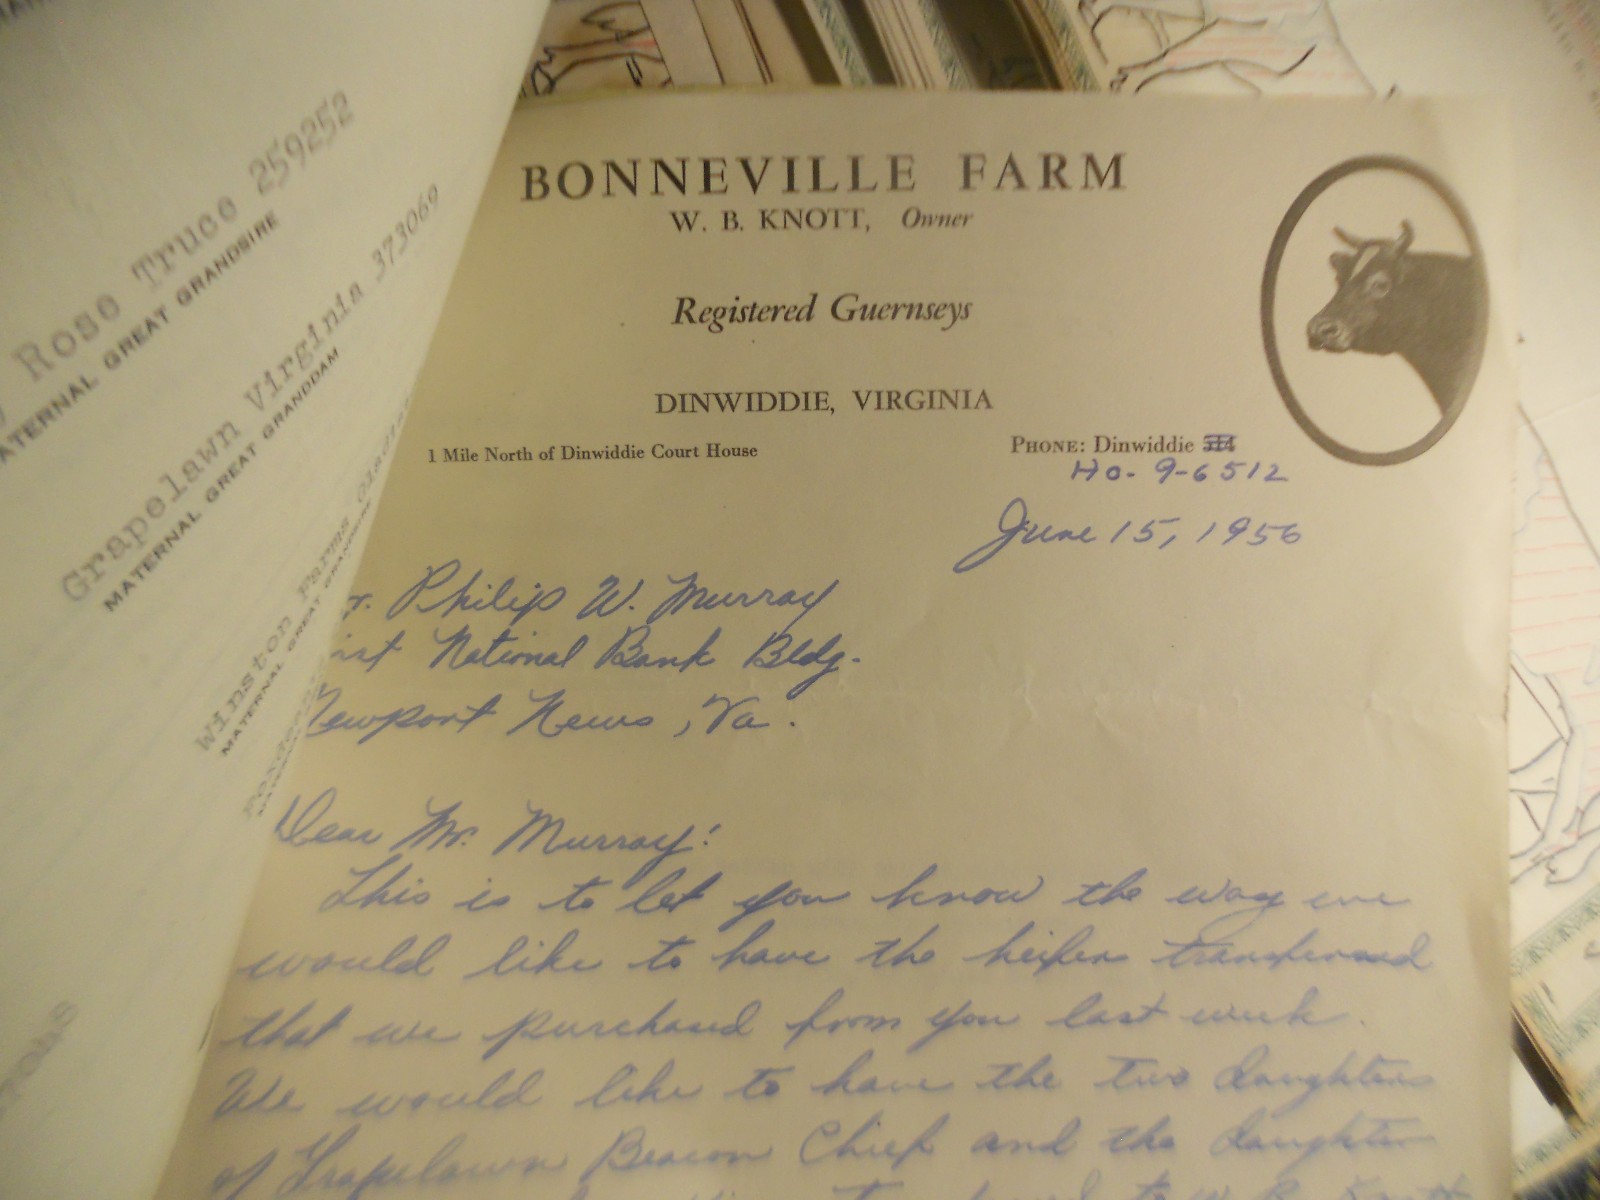 Rose Truce 259252
MATERNAL GREAT GRANDSIRE
Grapelawn Virginia 373069
MATERNAL GREAT GRANDDAM
Winston Farms
MATERNAL GREAT
BONNEVILLE FARM
W. B. KNOTT, Owner
Registered Guernseys
DINWIDDIE, VIRGINIA
1 Mile North of Dinwiddie Court House
PHONE: Dinwiddie 
HO- 9-6512
June 15, 1956
r. Philip W. Murray
irst National Bank Bldg.
Newport News, Va.
Dear Mr. Murray:
This is to let you know the way we
would like to have the heifers transferred
that we purchased from you last week.
We would like to have the two daughters
of Grapelawn Beacon Chief and the daughter
to W. B. Knott